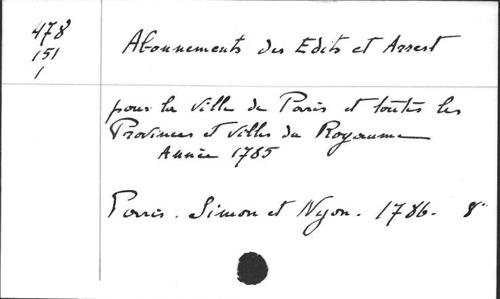 478
151
1
Abonnements des Edits et Arrest
pour la Ville de Paris et toutes les
Provinces et Villes du Royaume
Année 1785
Paris. Simon et Nyon. 1786. 8°